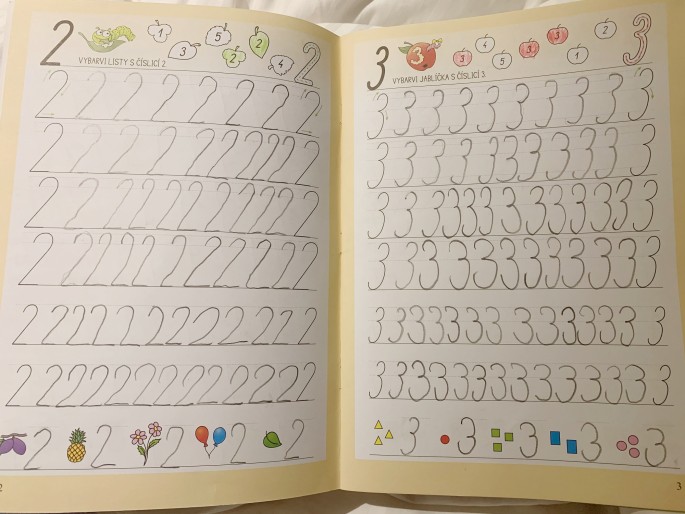 2
1 3 5 2 2 4
2
VYBARVI LISTY S ČÍSLICÍ 2
2 2 2 2 2 2 2 2
2 2 2 2 2 2 2 2 2 2
2 2 2 2 2 2 2 2 2 2
2 2 2 2 2 2 2 2 2 2 2
2 2 2 2 2 2 2 2 2 2 2 2
2 2 2 2 2 2 2 2 2 2 2 2 2
2 2 2 2 2
2
3
3 3 4 5 3 3 1 2
3
VYBARVI JABLÍČKA S ČÍSLICÍ 3
3 3 3 3 3 3 3 3 3 3
3 3 3 3 3 3 3 3 3 3 3
3 3 3 3 3 3 3 3 3 3 3 3 3
3 3 3 3 3 3 3 3 3 3 3 3
3 3 3 3 3 3 3 3 3 3 3 3 3 3
3 3 3 3 3 3 3 3 3 3 3 3 3 3
3 3 3 3 3
3